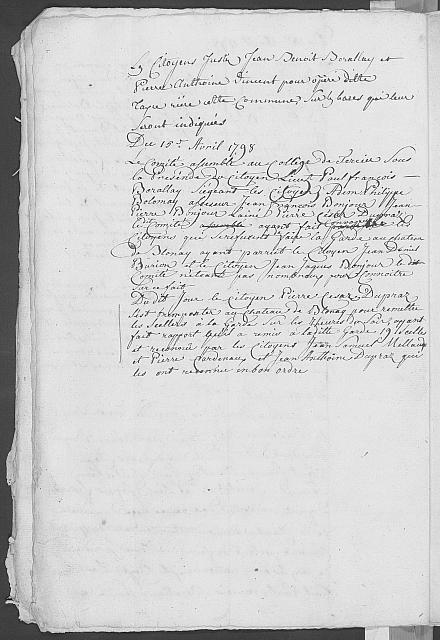 les Citoyens Juste Jean Benoit Borallay et
Pierre Anthoine Vincent pour opérer ditte
Taxe riére cette Commune, Sur les bases qui leur
seront indiquées
Du 15e Avril 1798
Le Comité assemblé au Collège de Sercier Sous
la Présidence du Citoyen Lieut Paul françois
Borallay Siégeant les Citoyens Aden Philippe
Bolomay assesseur Jean françois Bonjour Jean
Pierre Bonjour Lainé Pierre César Dupraz
le Comité ayant fait convoquer les
Citoyens qui devoient faire la Garde au chateau
de Blonay ayant parroit le Citoyen Jean Daniel
Burion et le Citoyen Jean Jaques Bonjour le dit
Comité n'étant pas nombreux pour Connoitre
Sur ce fait
Du dit Jour le Citoyen Pierre Cesar Dupraz
S'est transporter au chateau de Blonay pour remettre
les Scellers à la Garde sur les heures du Soir, ayant
fait rapport qu'il a remis à la ditte Garde 19 scellés
et reconnue par les Citoyens Jean Samuel Mellaud
et Pierre Cardenaux et Jean Anthoine Dupraz qui
les ont reconnue en bon ordre